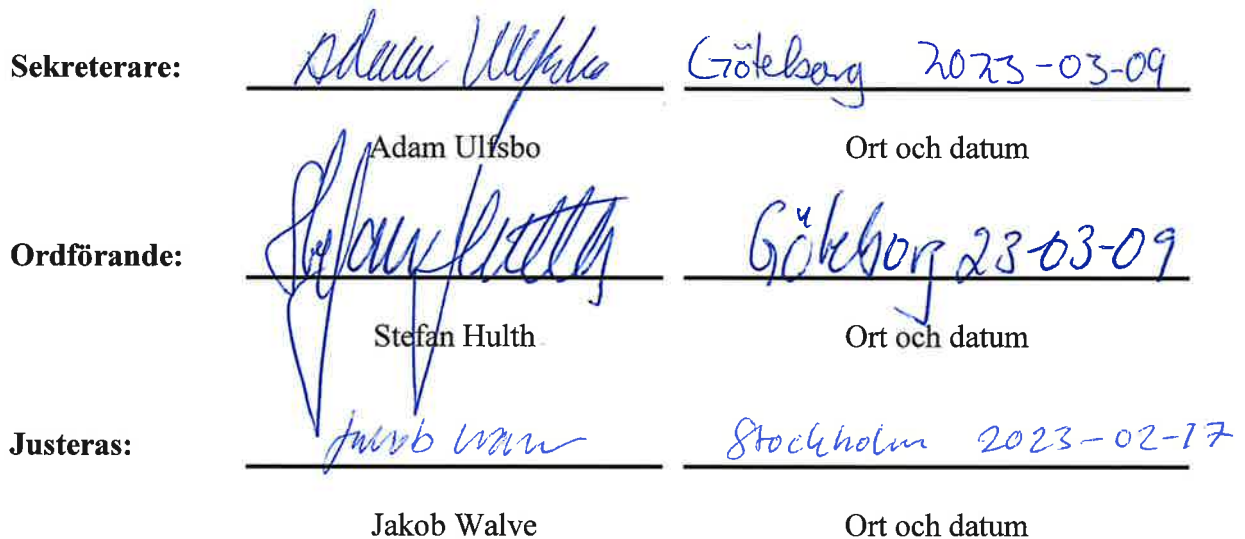 Sekreterare: Adam Ulfsbo Göteborg 2023-03-09
Adam Ulfsbo Ort och datum
Ordförande: Stefan Hulth Göteborg 23-03-09
Stefan Hulth Ort och datum
Justeras: Jakob Walve Stockholm 2023-02-17
Jakob Walve Ort och datum